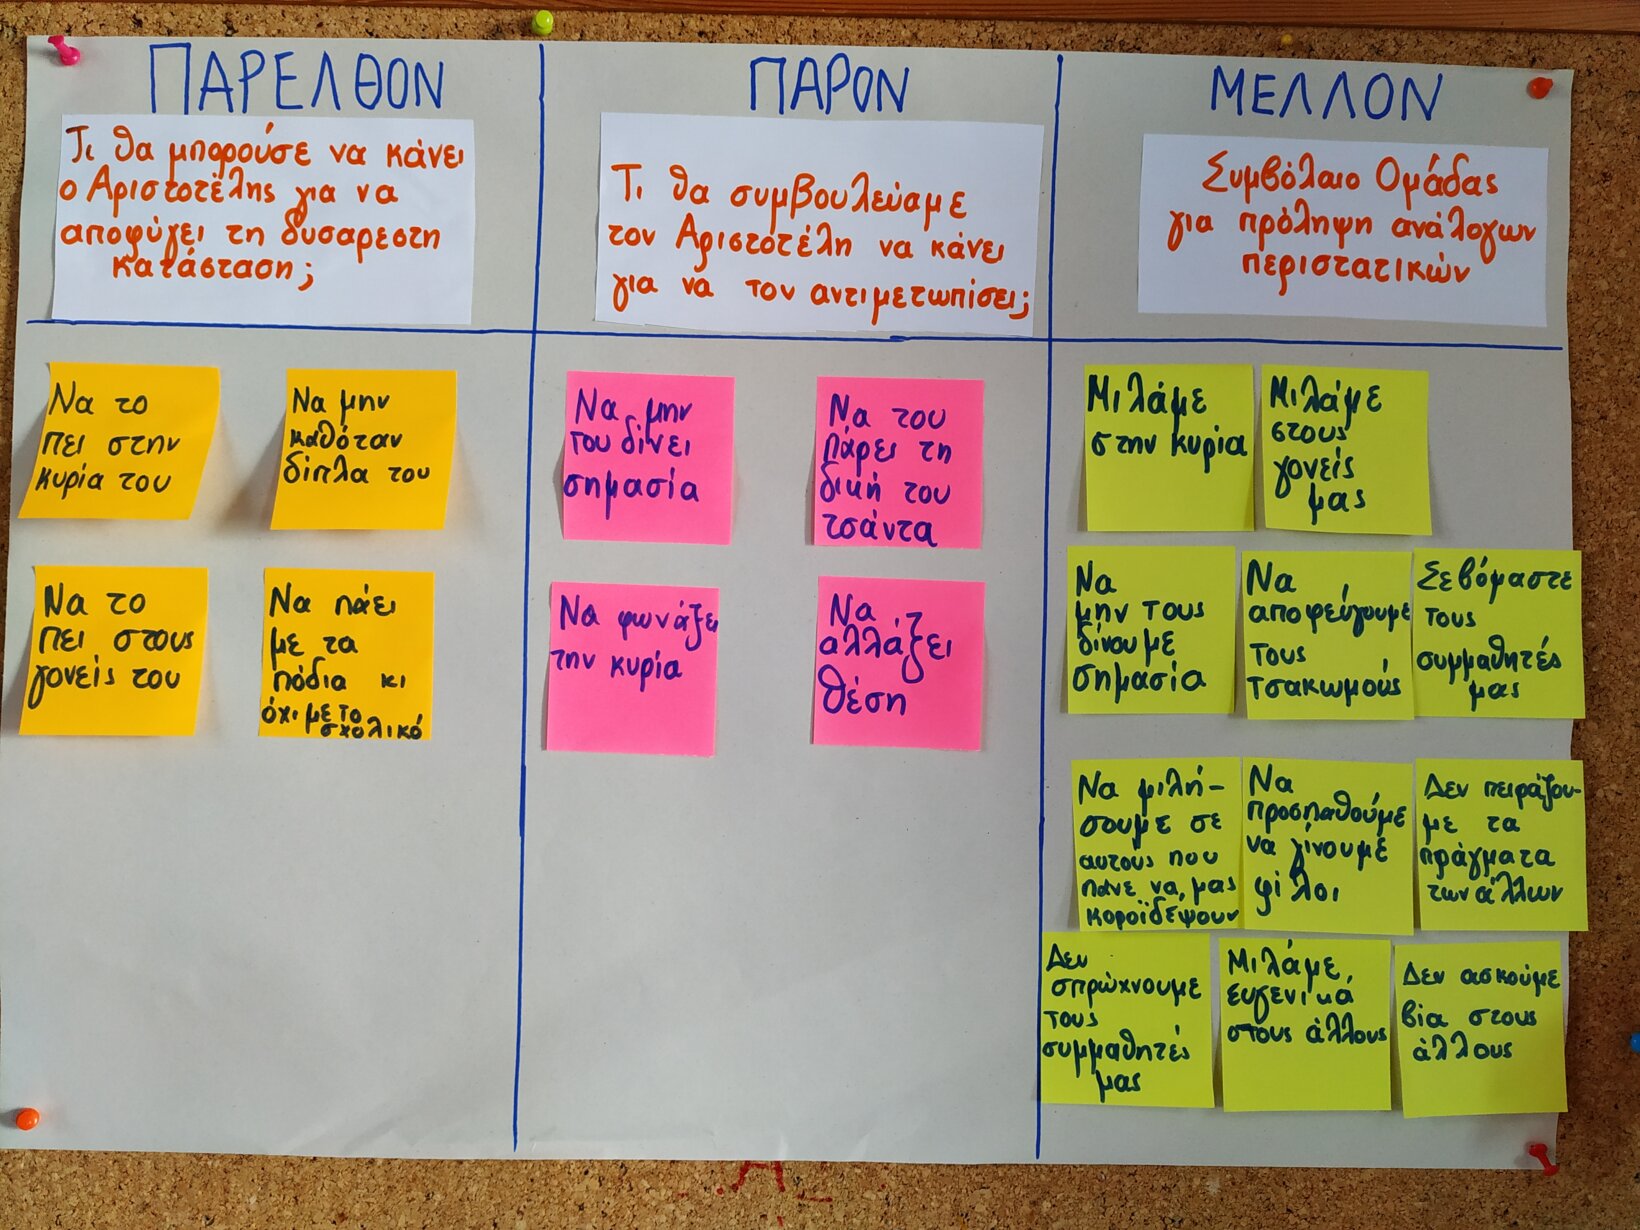 ΠΑΡΕΛΘΟΝ
Τι θα μπορούσε να κάνει
ο Αριστοτέλης για να
αποφύγει τη δυσαρεστη
κατάσταση;
Να το
πει στην
κυρία του
Να μην
καθόταν
δίπλα του
Να το
πει στους
γονείς του
Να πάει
με τα
πόδια κι
όχι με το
σχολικό
ΠΑΡΟΝ
Τι θα συμβουλεύαμε
τον Αριστοτέλη να κάνει
για να τον αντιμετωπίσει;
Να μην
του δίνει
σημασία
Να του
πάρει τη
δική του
τσάντα
Να φωνάξει
την κυρία
Να
αλλάξει
θέση
ΜΕΛΛΟΝ
Συμβόλαιο Ομάδας
για πρόληψη ανάλογων
περιστατικών
Μιλάμε
στην κυρία
Μιλάμε
στους
γονείς
μας
Να
μην τους
δίνουμε
σημασία
Να
αποφεύγουμε
τους
τσακωμούς
Σεβόμαστε
τους
συμμαθητές
μας
Να μιλή-
σουμε σε
αυτούς που
πάνε να μας
κοροϊδέψουν
Να
προσπαθούμε
να γίνουμε
φίλοι
Δεν πειράζου-
με τα
πράγματα
των άλλων
Δεν
σπρώχνουμε
τους
συμμαθητές
μας
Μιλάμε
ευγενικά
στους άλλους
Δεν ασκούμε
βία στους
άλλους